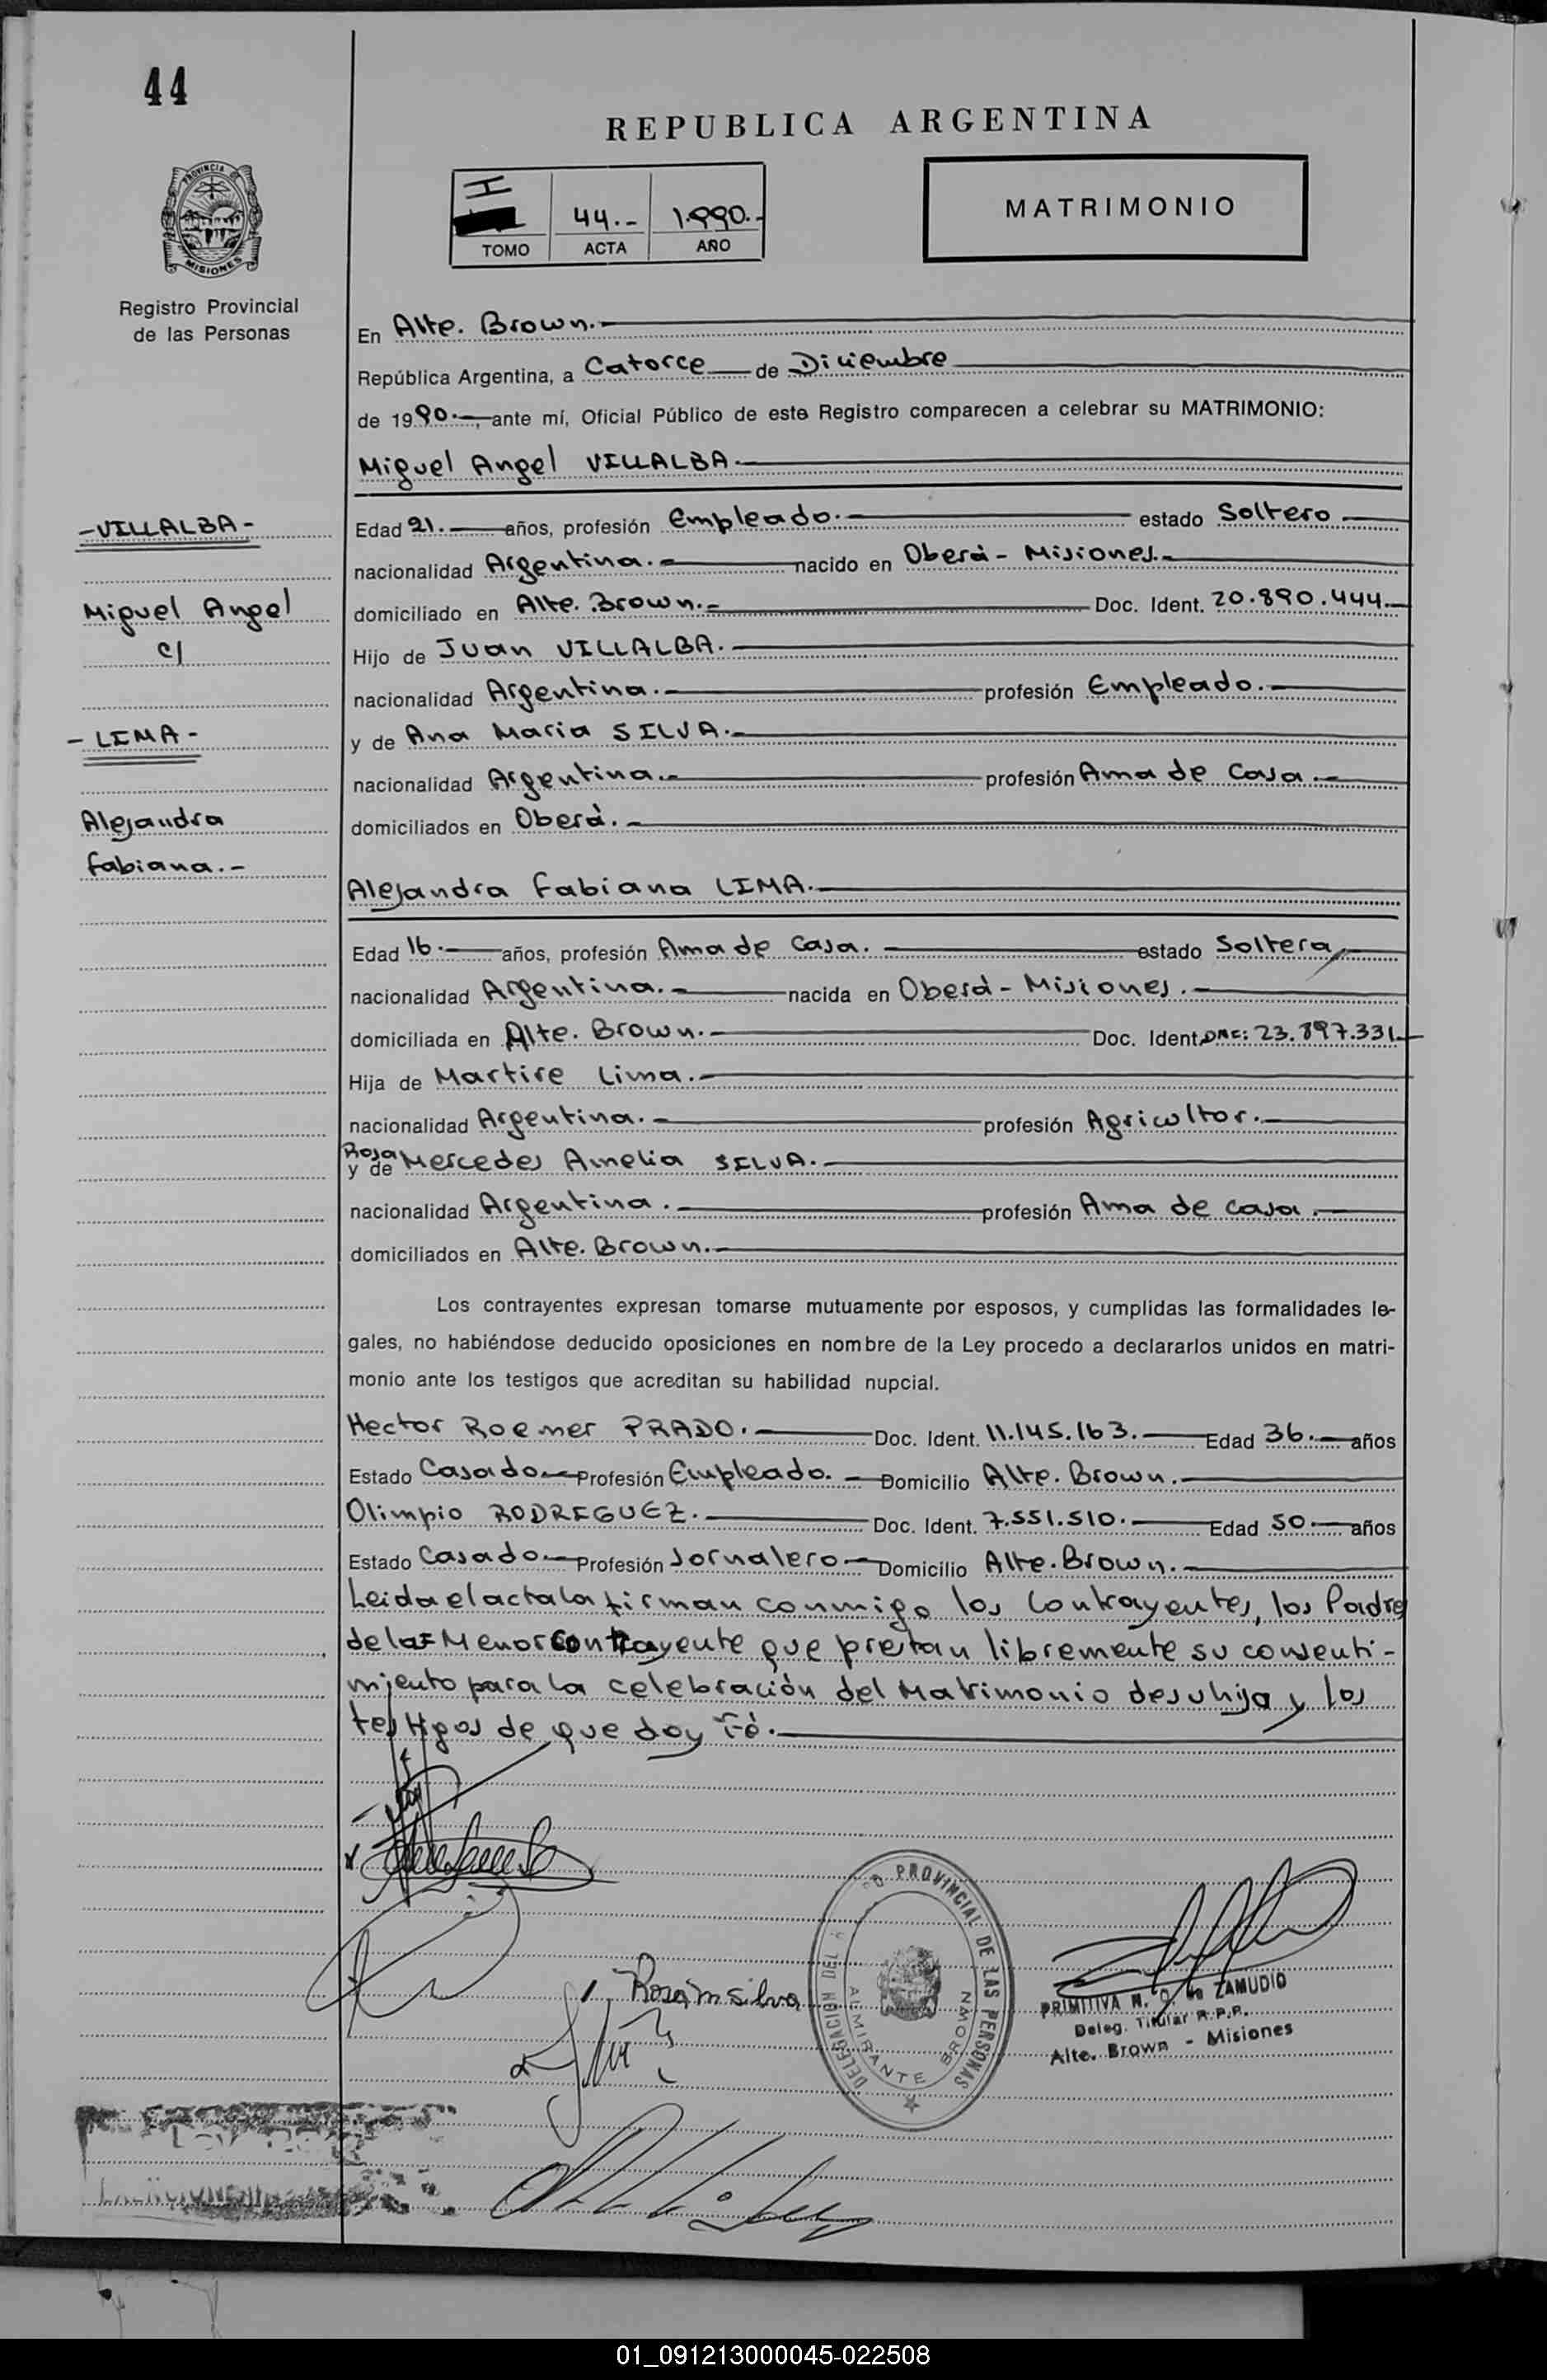 44
REPUBLICA ARGENTINA
PROVINCIA DE
MISIONES
I 44.- 1.990.-
TOMO ACTA AÑO
MATRIMONIO
Registro Provincial
de las Personas
En Alte. Brown.-
República Argentina, a Catorce de Diciembre
de 1990.-, ante mí, Oficial Público de este Registro comparecen a celebrar su MATRIMONIO:
Miguel Angel VILLALBA.
- VILLALBA -
Miguel Angel
c/
- LIMA -
Alejandra
Fabiana.-
Edad 21. años, profesión Empleado. estado Soltero
nacionalidad Argentina.- nacido en Oberá - Misiones.-
domiciliado en Alte. Brown.- Doc. Ident. 20.890.444.
Hijo de Juan VILLALBA.
nacionalidad Argentina.- profesión Empleado.-
y de Ana Maria SILVA.-
nacionalidad Argentina.- profesión Ama de Casa.-
domiciliados en Oberá.-
Alejandra Fabiana LIMA.-
Edad 16.- años, profesión Ama de Casa. estado Soltera
nacionalidad Argentina.- nacida en Oberá - Misiones.-
domiciliada en Alte. Brown.- Doc. Ident. DNI: 23.897.331.-
Hija de Martire Lima.-
nacionalidad Argentina.- profesión Agricultor.-
Rosa
y de Mercedes Amelia SILVA.-
nacionalidad Argentina.- profesión Ama de casa.-
domiciliados en Alte. Brown.-
Los contrayentes expresan tomarse mutuamente por esposos, y cumplidas las formalidades le-
gales, no habiéndose deducido oposiciones en nombre de la Ley procedo a declararlos unidos en matri-
monio ante los testigos que acreditan su habilidad nupcial.
Hector Roemer PRADO.- Doc. Ident. 11.145.163.- Edad 36.- años
Estado Casado Profesión Empleado.- Domicilio Alte. Brown.-
Olimpio RODRIGUEZ.- Doc. Ident. 7.551.510.- Edad 50.- años
Estado Casado Profesión Jornalero Domicilio Alte. Brown.-
Leida el acta la firman conmigo los Contrayentes, los Padres
de la Menor Contrayente que prestan libremente su consenti-
miento para la celebración del Matrimonio de su hija y los
testigos de que doy Fé.-
Rosa m silva
DELEGACION DEL PROVINCIAL DE LAS PERSONAS
ALMIRANTE BROWN
PRIMITIVA N. de ZAMUDIO
Deleg. Titular R.P.P.
Alte. Brown - Misiones
01_091213000045-022508